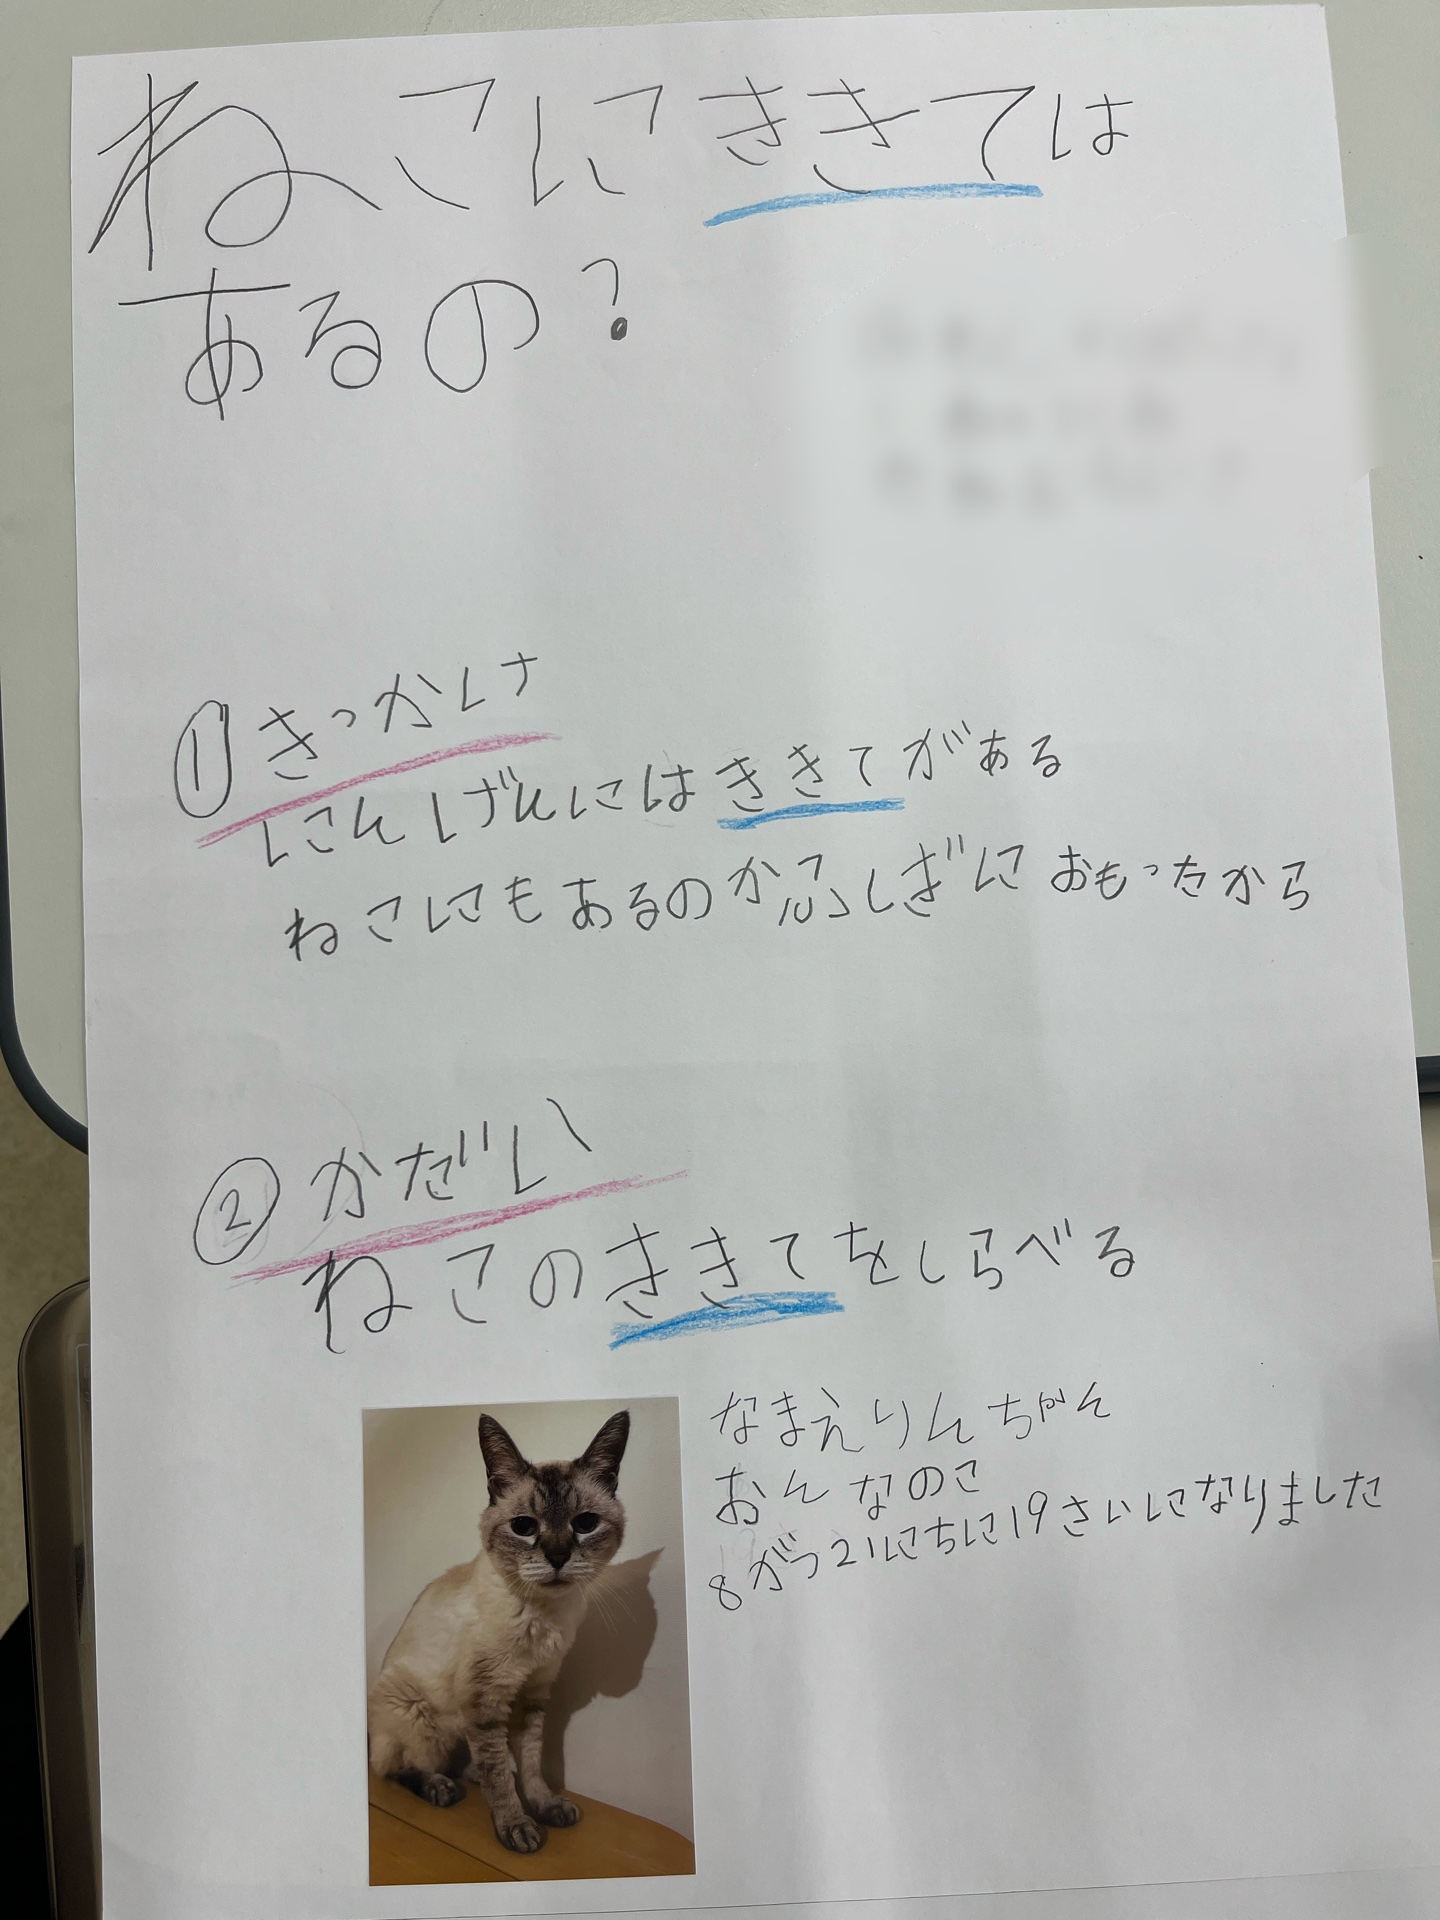 ねこにききては
あるの?
① きっかけ
にんげんにはききてがある
ねこにもあるのかふしぎにおもったから
② かだい
ねこのききてをしらべる
なまえりんちゃん
おんなのこ
8がつ21にちに19さいになりました